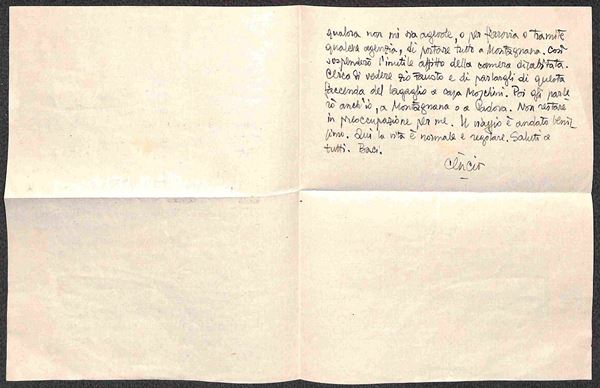 qualora non mi sia agevole, o per ferrovia o tramite
qualche agenzia, di portare tutto a Montagnana. Così
sospenderò l'inutile affitto della camera disabitata.
Cerca di vedere zio Fausto e di parlargli di questa
faccenda del bagaglio a casa Moschini. Poi gli parle-
rò anch'io, a Montagnana o a Padova. Non restare
in preoccupazione per me. Il viaggio è andato benis-
simo. Qui la vita è normale e regolare. Saluti a
tutti. Baci.